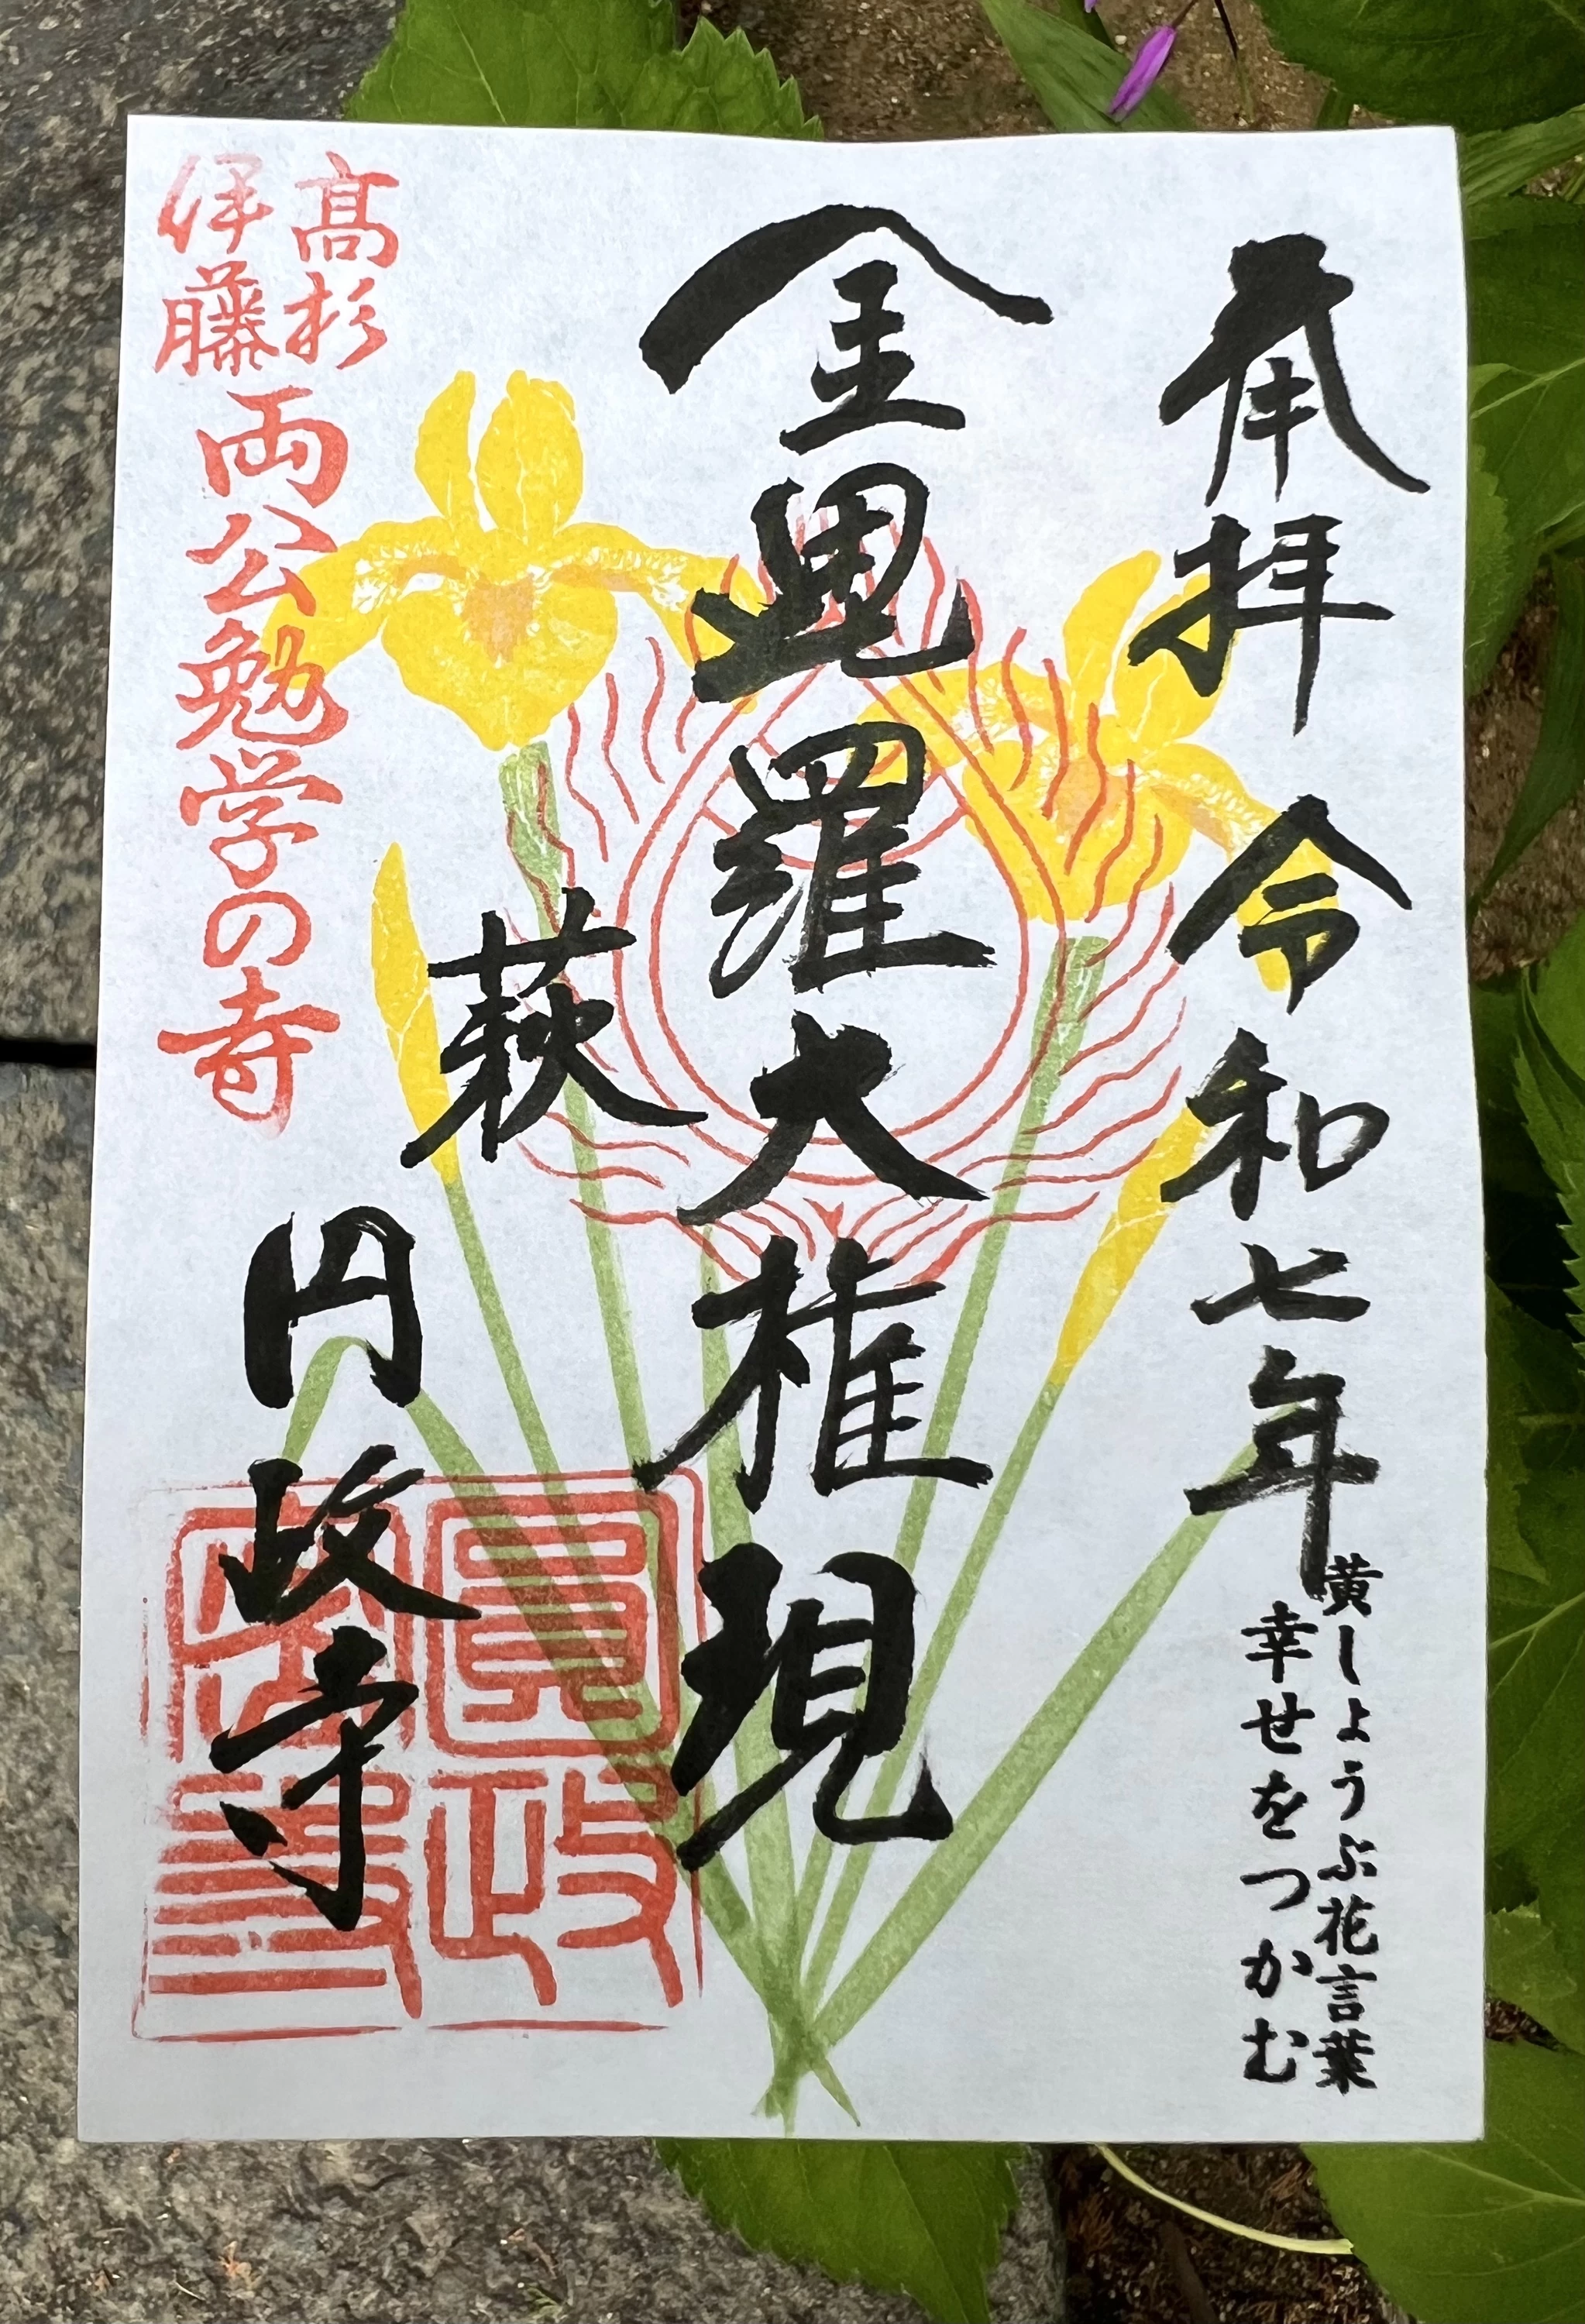 奉拝 令和七年
黄しょうぶ花言葉
幸せをつかむ
金毘羅大権現
萩
円政寺
高杉
伊藤
両公勉学の寺